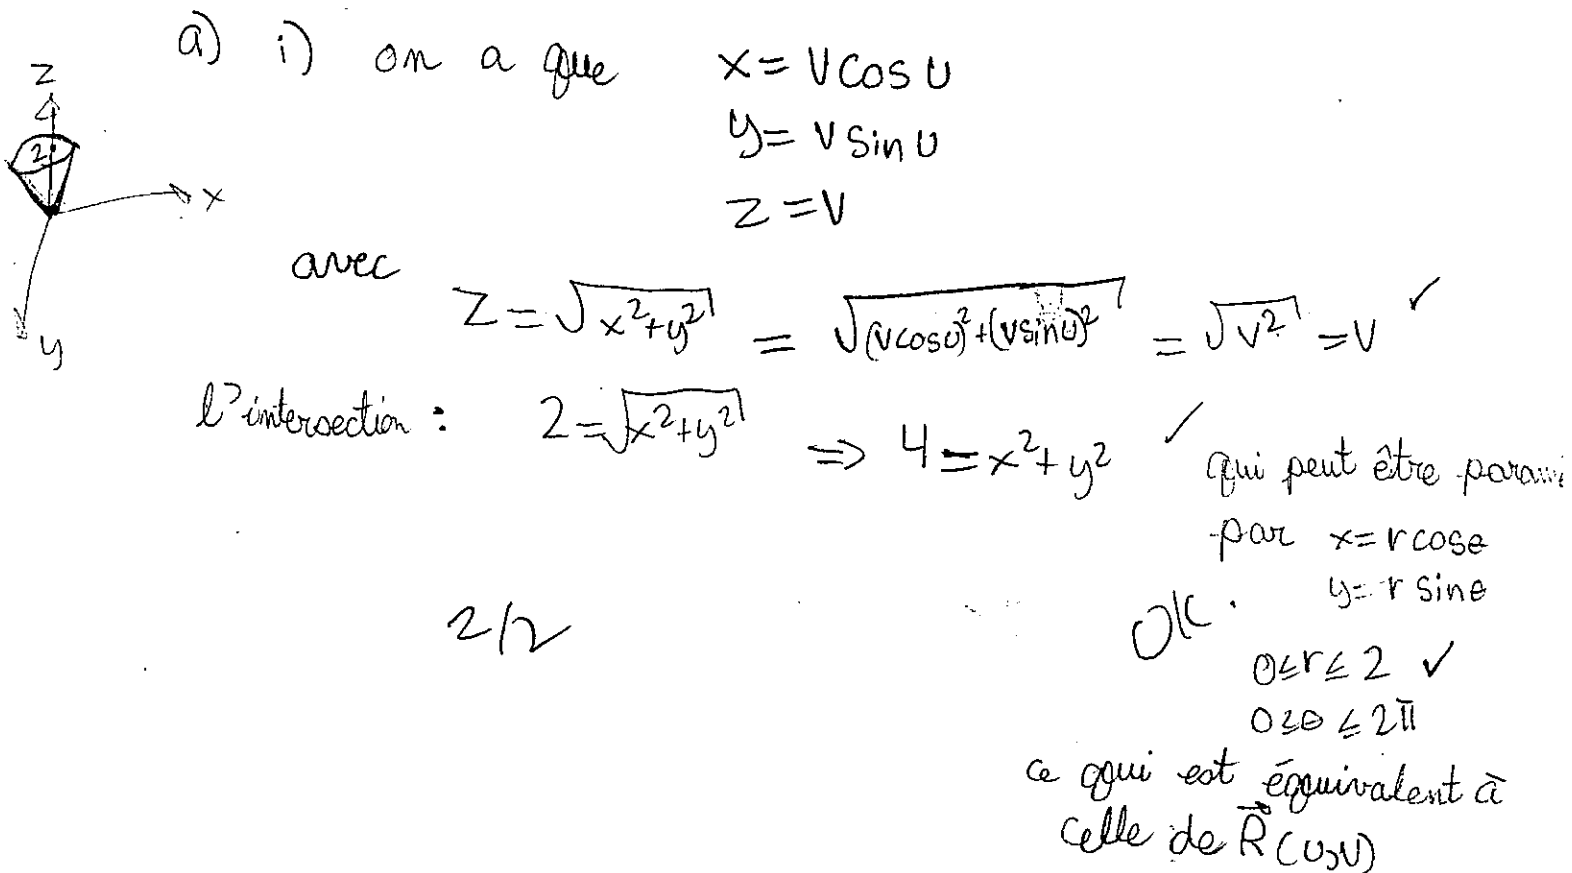 a) i) on a que x = v cos u
y = v sin u
z = v
z
2
x
y
avec z = √(x²+y²) = √((v cos u)²+(v sin u)²) = √(v²) = v ✓
l'intersection : 2 = √(x²+y²) ⇒ 4 = x²+y² ✓ qui peut être
par x = r cosθ
y = r sinθ
2/2
OK.
0 ≤ r ≤ 2 ✓
0 ≤ θ ≤ 2π
ce qui est équivalent à
celle de R⃗(u,v)